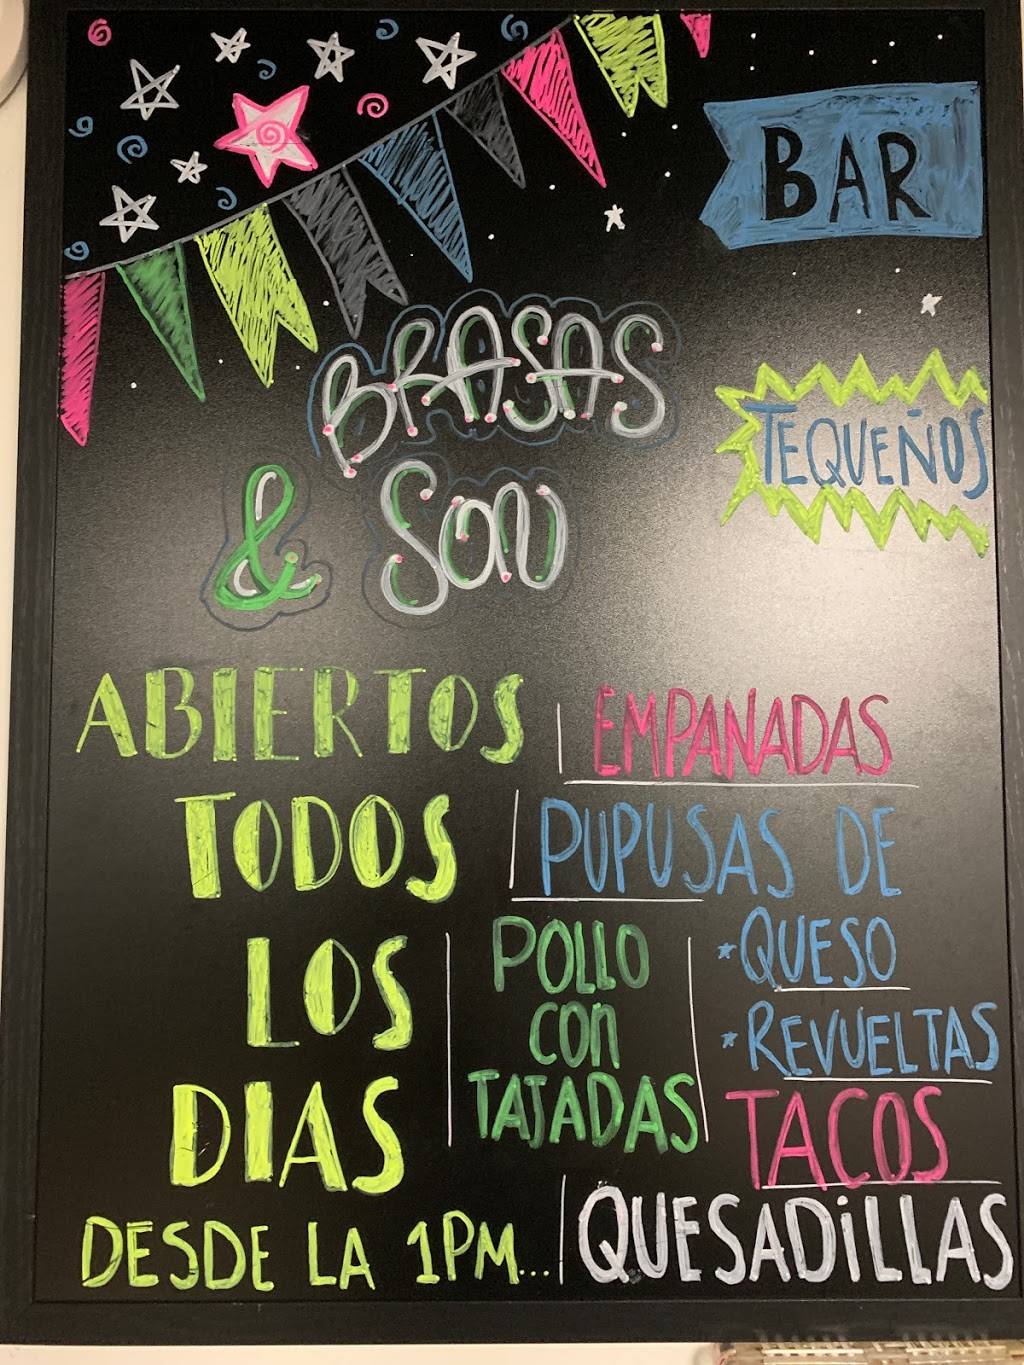 BAR
BRASAS
& SON
TEQUEÑOS
ABIERTOS
TODOS
LOS
DIAS
DESDE LA 1PM...
EMPANADAS
PUPUSAS DE
*QUESO
*REVUELTAS
POLLO
CON
TAJADAS
TACOS
QUESADiLLAS